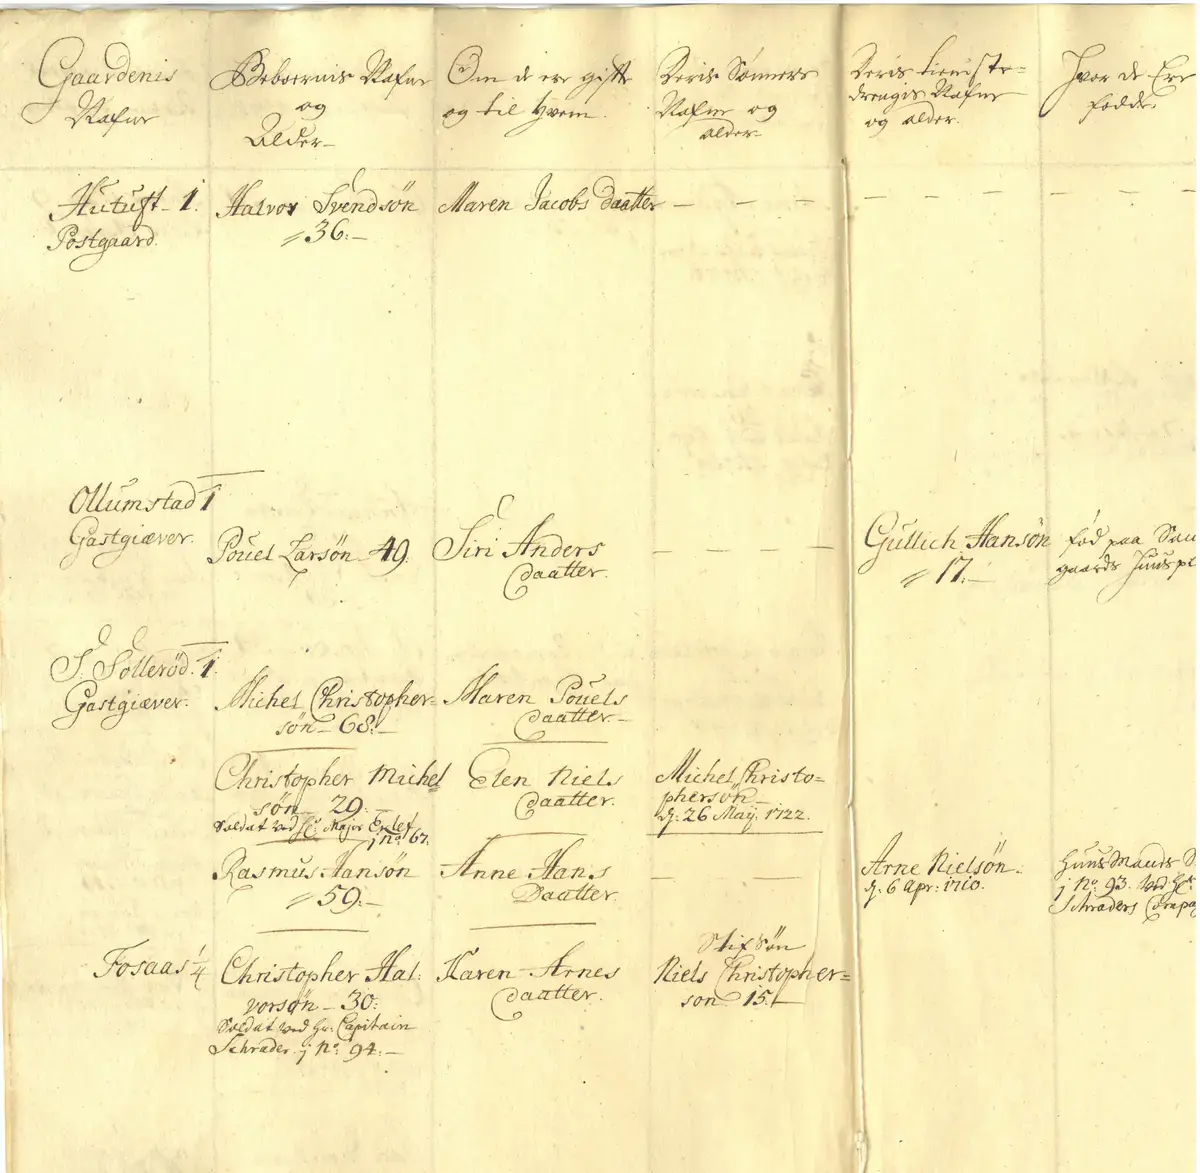 Gaardenis
Nafne
Beboernis Nafne
og
Alder
Om de ere gifte
og til hvem.
Deris Sønners
Nafne og
alder
Deris tienste-
drengis Nafne
og alder.
Hvor de Ere
fødde
Hutuft - 1.
Postgaard.
Halvor Svendsøn
36:-
Maren Jacobs daatter
Ollumstad 1
Gastgiæver.
Pouel Larsøn 49.
Siri Anders
daatter.
Gullich Hansøn
17:-
fød paa
gaards Huuspl
S: Sollerød. 1.
Gastgiæver.
Michel Christopher-
søn - 68:-
Maren Pouels
daatter-
Christopher Michel
søn - 29:-
Soldat ved Hr: Major
j no 67.
Elen Niels
daatter.
Michel Christo-
phersøn
d: 26 May: 1722.
Rasmus Hansøn
59:-
Anne Hans
Daatter
Arne Nielsøn.
d: 6 Apr: 1710.
Huusmands S
j No: 93. ved Hr:
Schraders Compag
Fosaas 1/4
Christopher Hal:
vorsøn - 30:
Soldat ved Hr: Capitain
Schrader j No: 94:-
Karen Arnes
daatter.
Stifsøn
Niels Christopher-
son 15:-